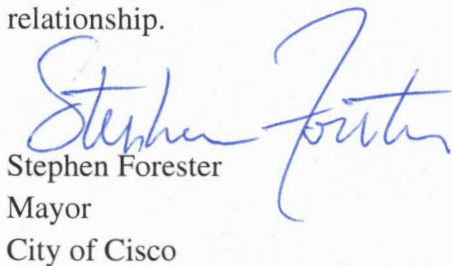 relationship.
Stephen Forester
Stephen Forester
Mayor
City of Cisco